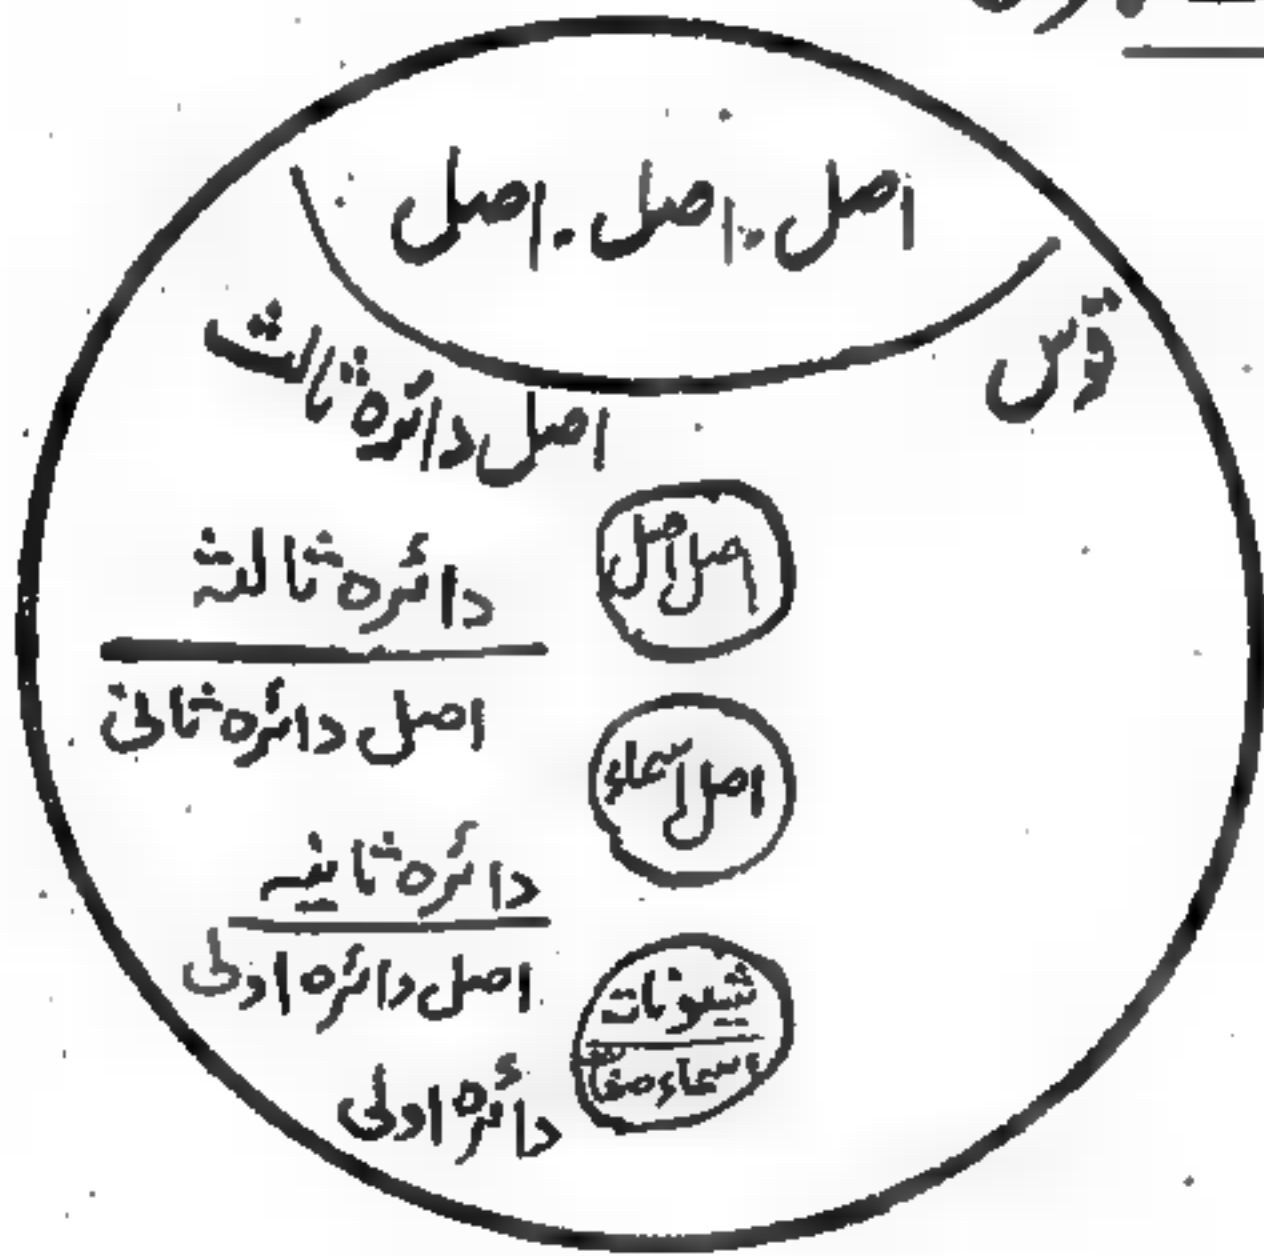 اصل . اصل . اصل
قوس
اصل دائرہ ثالث
اصل اصل
دائرہ ثالثہ
اصل دائرہ ثانی
اصل اسماء
دائرہ ثانیہ
اصل دائرہ اولی
شیونات
اسماء صفات
دائرہ اولی